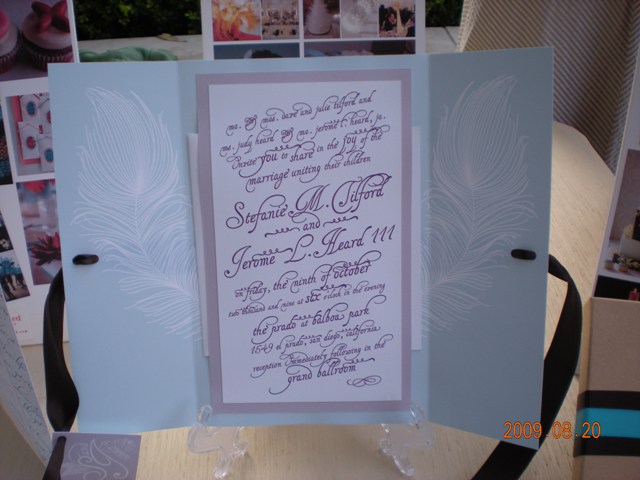 mr. & mrs. dave and julie tilford and
ms. judy heard & mr. jerome l. heard, jr.
Invite you to share in the joy of the
marriage uniting their children
Stefanie M. Tilford
and
Jerome L. Heard III
on friday, the ninth of october
two thousand and nine at six o'clock in the evening
the prado at balboa park
1549 el prado, san diego, california
reception immediately following in the
grand ballroom
2009.08.20